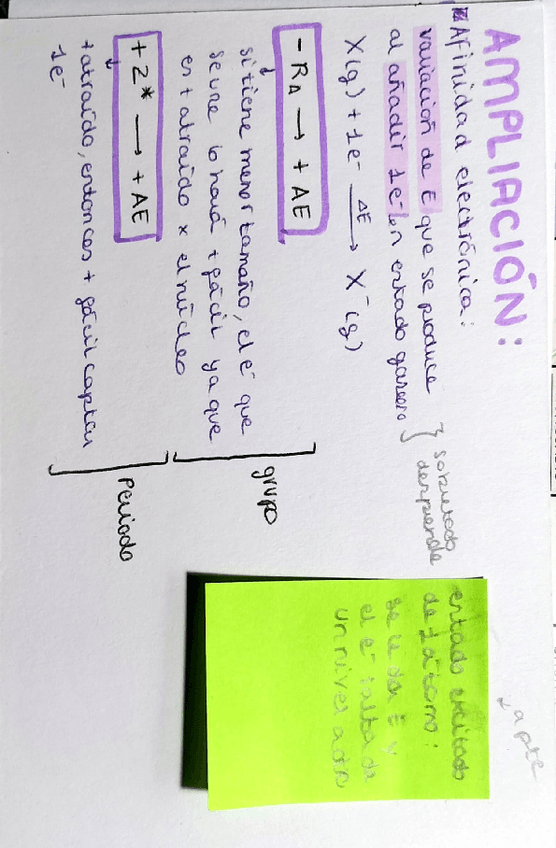 AMPLIACIÓN:
Afinidad electrónica:
variación de E que se produce
al añadir 1e⁻ en estado gaseoso
sobretodo
desprende
X(g) + 1e⁻ ⟶ X⁻(g)
ΔE
- RA ⟶ + AE
si tiene menor tamaño, el e⁻ que
se une lo hará + fácil ya que
es + atraído x el núcleo
grupo
+ Z* ⟶ + AE
+ atraído, entonces + fácil captar
1e⁻
Periodo
estado excitado
de 1 átomo:
se le da E y
el e⁻ salta de
un nivel a otro